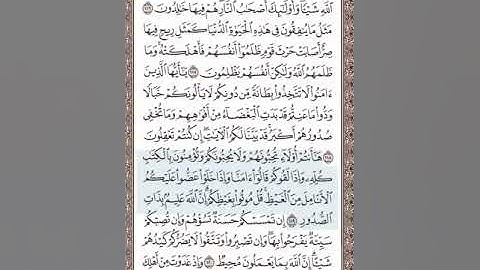 ٱللَّهِ شَيْـًٔا وَأُو۟لَـٰٓئِكَ أَصْحَـٰبُ ٱلنَّارِ هُمْ فِيهَا خَـٰلِدُونَ ١١٦
مَثَلُ مَا يُنفِقُونَ فِى هَـٰذِهِ ٱلْحَيَوٰةِ ٱلدُّنْيَا كَمَثَلِ رِيحٍ فِيهَا
صِرٌّ أَصَابَتْ حَرْثَ قَوْمٍ ظَلَمُوٓا۟ أَنفُسَهُمْ فَأَهْلَكَتْهُ وَمَا
ظَلَمَهُمُ ٱللَّهُ وَلَـٰكِنْ أَنفُسَهُمْ يَظْلِمُونَ ١١٧ يَـٰٓأَيُّهَا ٱلَّذِينَ
ءَامَنُوا۟ لَا تَتَّخِذُوا۟ بِطَانَةً مِّن دُونِكُمْ لَا يَأْلُونَكُمْ خَبَالًا
وَدُّوا۟ مَا عَنِتُّمْ قَدْ بَدَتِ ٱلْبَغْضَآءُ مِنْ أَفْوَٰهِهِمْ وَمَا تُخْفِى
صُدُورُهُمْ أَكْبَرُ قَدْ بَيَّنَّا لَكُمُ ٱلْـَٔايَـٰتِ إِن كُنتُمْ تَعْقِلُونَ
١١٨ هَـٰٓأَنتُمْ أُو۟لَآءِ تُحِبُّونَهُمْ وَلَا يُحِبُّونَكُمْ وَتُؤْمِنُونَ بِٱلْكِتَـٰبِ
كُلِّهِۦ وَإِذَا لَقُوكُمْ قَالُوٓا۟ ءَامَنَّا وَإِذَا خَلَوْا۟ عَضُّوا۟ عَلَيْكُمُ
ٱلْأَنَامِلَ مِنَ ٱلْغَيْظِ قُلْ مُوتُوا۟ بِغَيْظِكُمْ إِنَّ ٱللَّهَ عَلِيمٌۢ بِذَاتِ
ٱلصُّدُورِ ١١٩ إِن تَمْسَسْكُمْ حَسَنَةٌ تَسُؤْهُمْ وَإِن تُصِبْكُمْ
سَيِّئَةٌ يَفْرَحُوا۟ بِهَا وَإِن تَصْبِرُوا۟ وَتَتَّقُوا۟ لَا يَضُرُّكُمْ كَيْدُهُمْ
شَيْـًٔا إِنَّ ٱللَّهَ بِمَا يَعْمَلُونَ مُحِيطٌ ١٢٠ وَإِذْ غَدَوْتَ مِنْ أَهْلِكَ